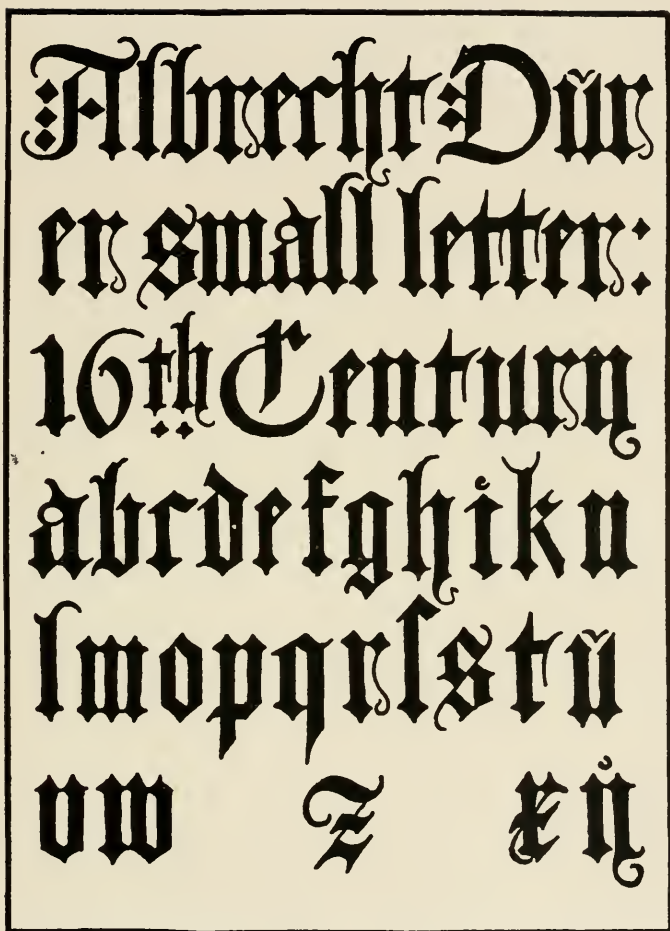 :Albrecht:Dŭr
er small letter:
16th Century
abcdefghikn
lmopqrſstŭ
vw z xy